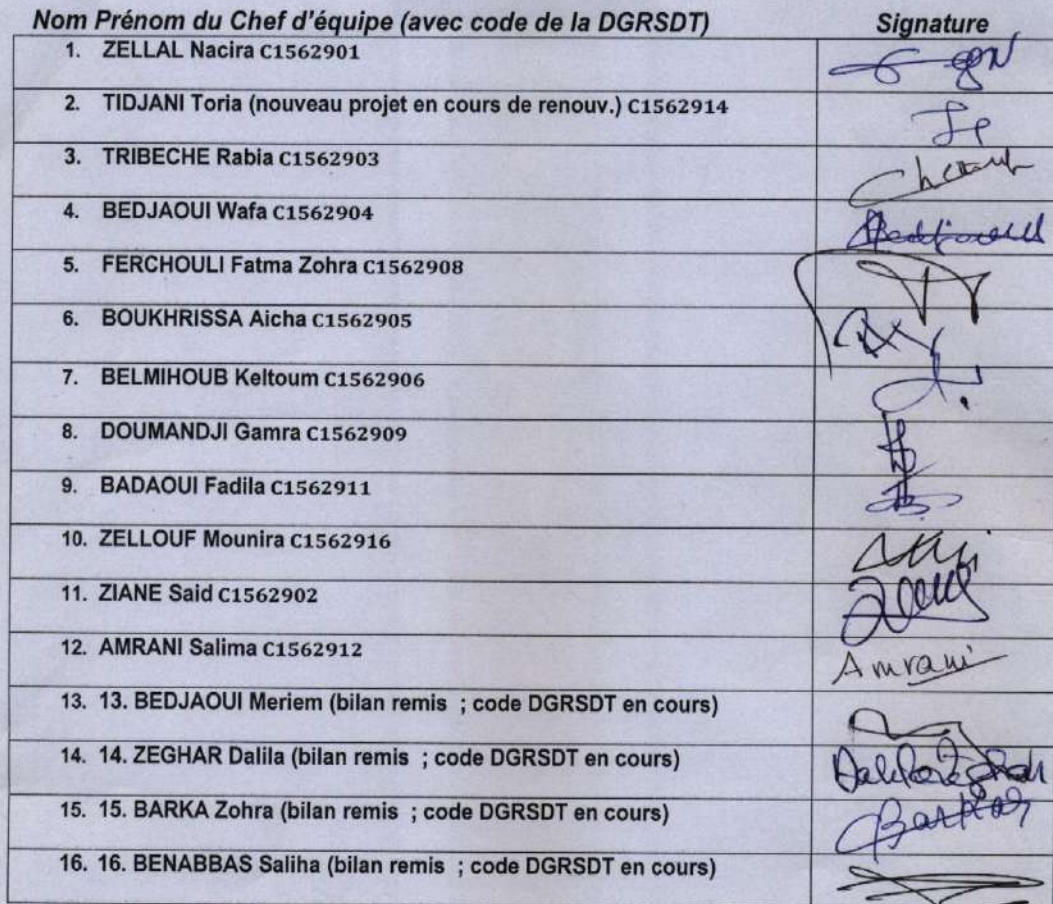 Nom Prénom du Chef d'équipe (avec code de la DGRSDT) Signature
1. ZELLAL Nacira C1562901
2. TIDJANI Toria (nouveau projet en cours de renouv.) C1562914
3. TRIBECHE Rabia C1562903
4. BEDJAOUI Wafa C1562904
Bedjaoui
5. FERCHOULI Fatma Zohra C1562908
6. BOUKHRISSA Aicha C1562905
7. BELMIHOUB Keltoum C1562906
8. DOUMANDJI Gamra C1562909
9. BADAOUI Fadila C1562911
10. ZELLOUF Mounira C1562916
11. ZIANE Said C1562902
12. AMRANI Salima C1562912
Amrani
13. 13. BEDJAOUI Meriem (bilan remis ; code DGRSDT en cours)
14. 14. ZEGHAR Dalila (bilan remis ; code DGRSDT en cours)
15. 15. BARKA Zohra (bilan remis ; code DGRSDT en cours)
16. 16. BENABBAS Saliha (bilan remis ; code DGRSDT en cours)